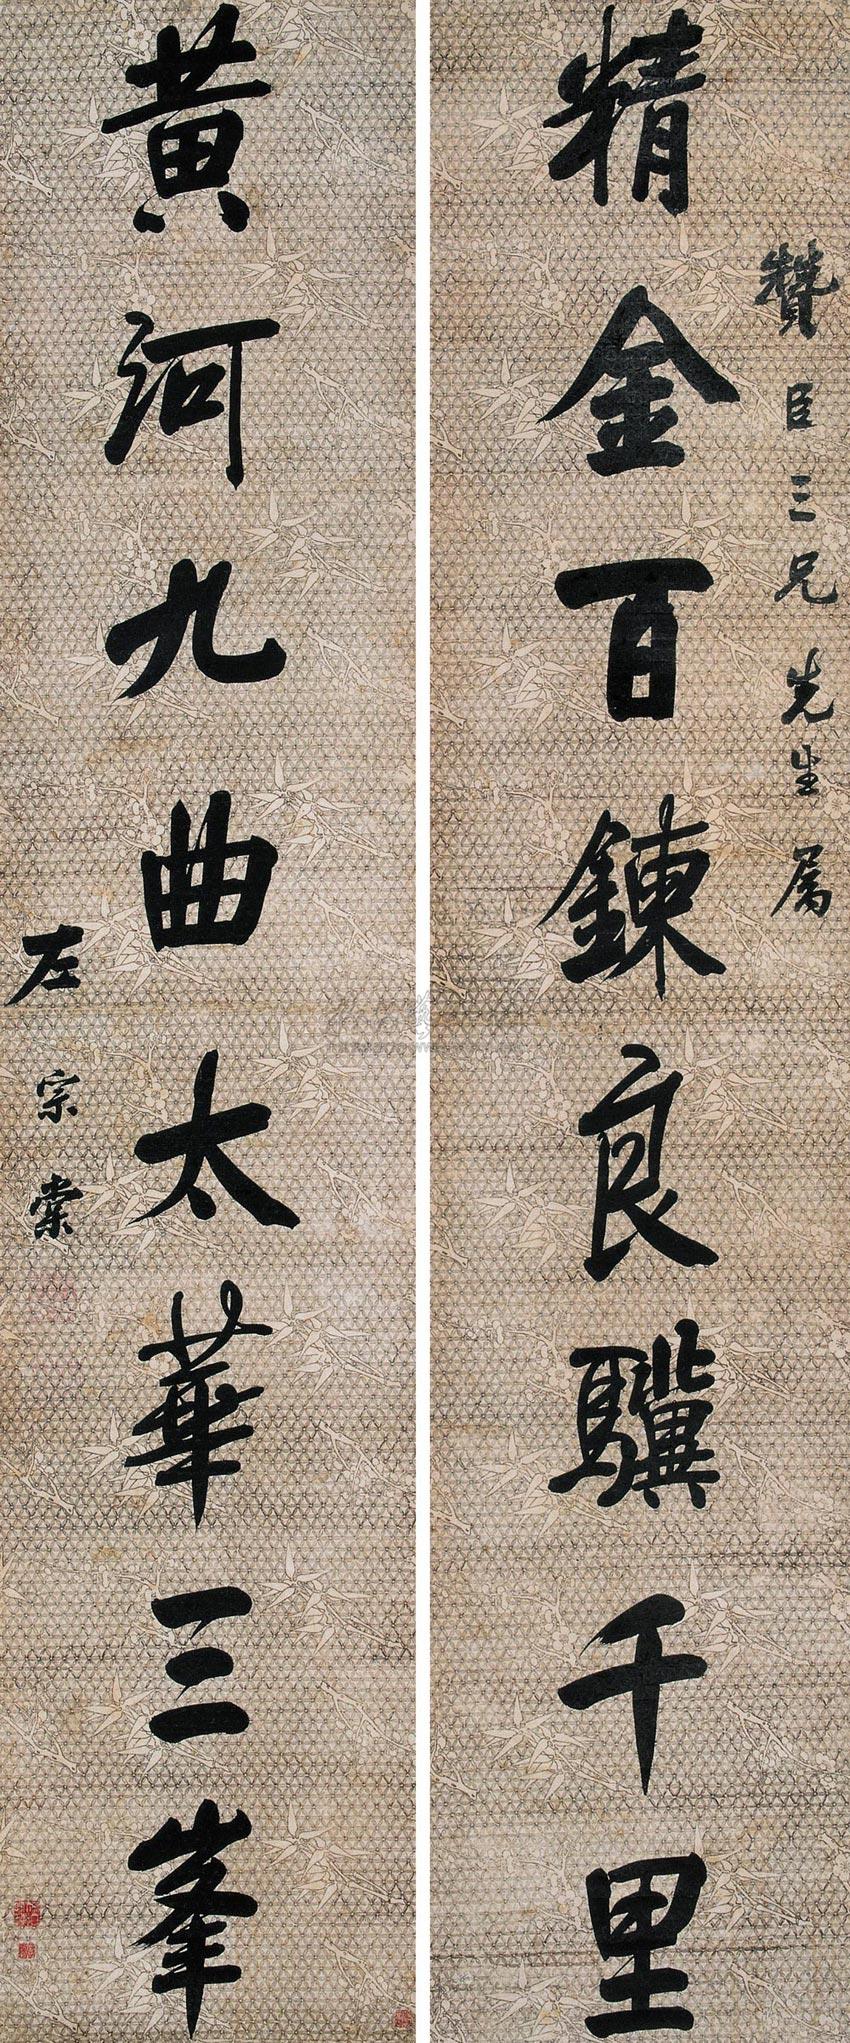 贊臣三兄先生属
精金百鍊良驥千里
黃河九曲太華三峯
左宗棠